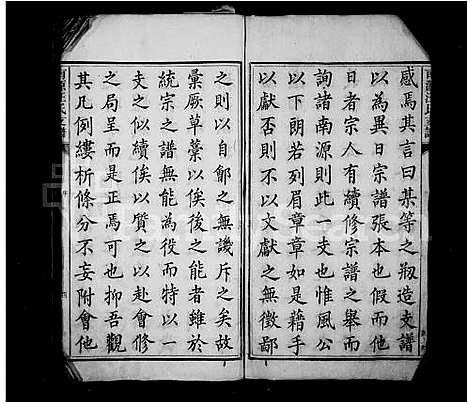 感焉其言曰某等之剏造支譜
以為異日宗譜張本也假而他
日者宗人有續修宗譜之舉而
詢諸南源則此一支也惟風公
以下朗若列眉章章如是藉手
以獻否則不以文獻之無徵鄙
之則以自鄶之無譏斥之矣故
彙厥草藁以俟後之能者雖於
統宗之譜無能為役而特以一
支之似續俟以質之以赴會修
之局呈而是正焉可也抑吾觀
其凡例縷析條分不妄附會他